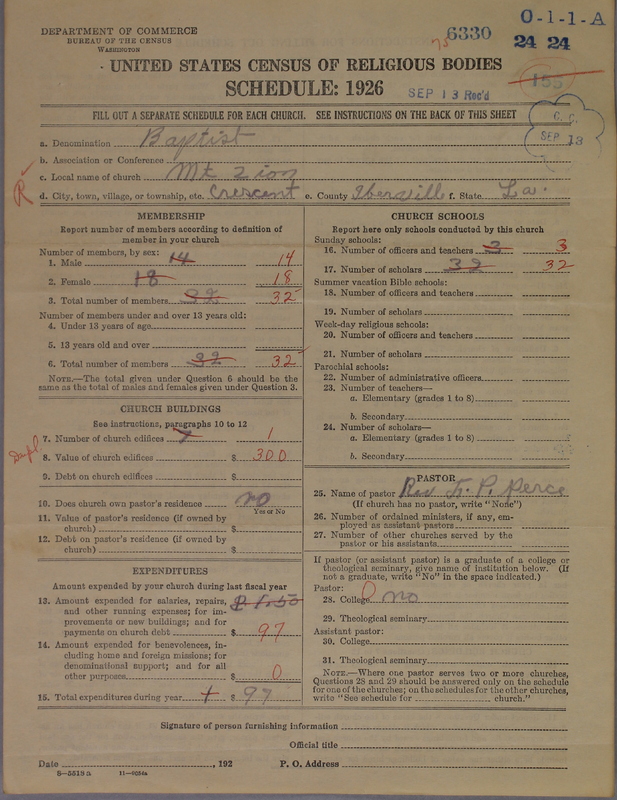 DEPARTMENT OF COMMERCE
BUREAU OF THE CENSUS
WASHINGTON
75 6330
0-1-1-A
24 24
155
UNITED STATES CENSUS OF RELIGIOUS BODIES
SCHEDULE: 1926
SEP 13 Rec'd
C. C.
SEP 13
FILL OUT A SEPARATE SCHEDULE FOR EACH CHURCH. SEE INSTRUCTIONS ON THE BACK OF THIS SHEET
a. Denomination Baptist
b. Association or Conference
c. Local name of church Mt Zion
R
d. City, town, village, or township, etc. Crescent e. County Iberville f. State La.
MEMBERSHIP
Report number of members according to definition of
member in your church
Number of members, by sex:
1. Male 14 14
2. Female 18 18
3. Total number of members 32 32
Number of members under and over 13 years old:
4. Under 13 years of age
5. 13 years old and over
6. Total number of members 32 32
NOTE.—The total given under Question 6 should be
same as the total of males and females given under Question 3.
CHURCH BUILDINGS
See instructions, paragraphs 10 to 12
7. Number of church edifices 1
Dupl
8. Value of church edifices $ 300
9. Debt on church edifices $
10. Does church own pastor's residence no
Yes or No
11. Value of pastor's residence (if owned by
church) $
12. Debt on pastor's residence (if owned by
church) $
EXPENDITURES
Amount expended by your church during last fiscal year
13. Amount expended for salaries, repairs,
and other running expenses; for im-
provements or new buildings; and for
payments on church debt $ 97
14. Amount expended for benevolences, in-
cluding home and foreign missions; for
denominational support; and for all
other purposes $ 0
15. Total expenditures during year $ 97
CHURCH SCHOOLS
Report here only schools conducted by this church
Sunday schools:
16. Number of officers and teachers 3 3
17. Number of scholars 32 32
Summer vacation Bible schools:
18. Number of officers and teachers
19. Number of scholars
Week-day religious schools:
20. Number of officers and teachers
21. Number of scholars
Parochial schools:
22. Number of administrative officers
23. Number of teachers—
a. Elementary (grades 1 to 8)
b. Secondary
24. Number of scholars—
a. Elementary (grades 1 to 8)
b. Secondary
PASTOR
25. Name of pastor Rev K. P. Perce
(If church has no pastor, write "None")
26. Number of ordained ministers, if any, em-
ployed as assistant pastors
27. Number of other churches served by the
pastor or his assistants
If pastor (or assistant pastor) is a graduate of a college or
theological seminary, give name of institution below. (If
not a graduate, write "No" in the space indicated.)
Pastor:
28. College no
29. Theological seminary
Assistant pastor:
30. College
31. Theological seminary
NOTE.—Where one pastor serves two or more churches,
Questions 28 and 29 should be answered only on the schedule
for one of the churches; on the schedules for the other churches,
write "See schedule for church."
Signature of person furnishing information
Official title
Date , 192 P. O. Address
S—5513a 11—9034a